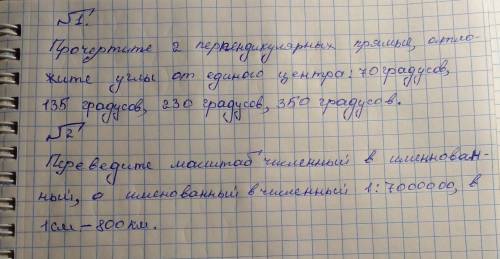 №1.
Прочертите 2 перпендикулярных прямые, отло-
жите углы от единого центра: 70 градусов,
135 градусов, 230 градусов, 350 градусов.
№2
Переведите масштаб численный в именнован-
ный, а именованный в численный 1:7000000, в
1см – 800 км.